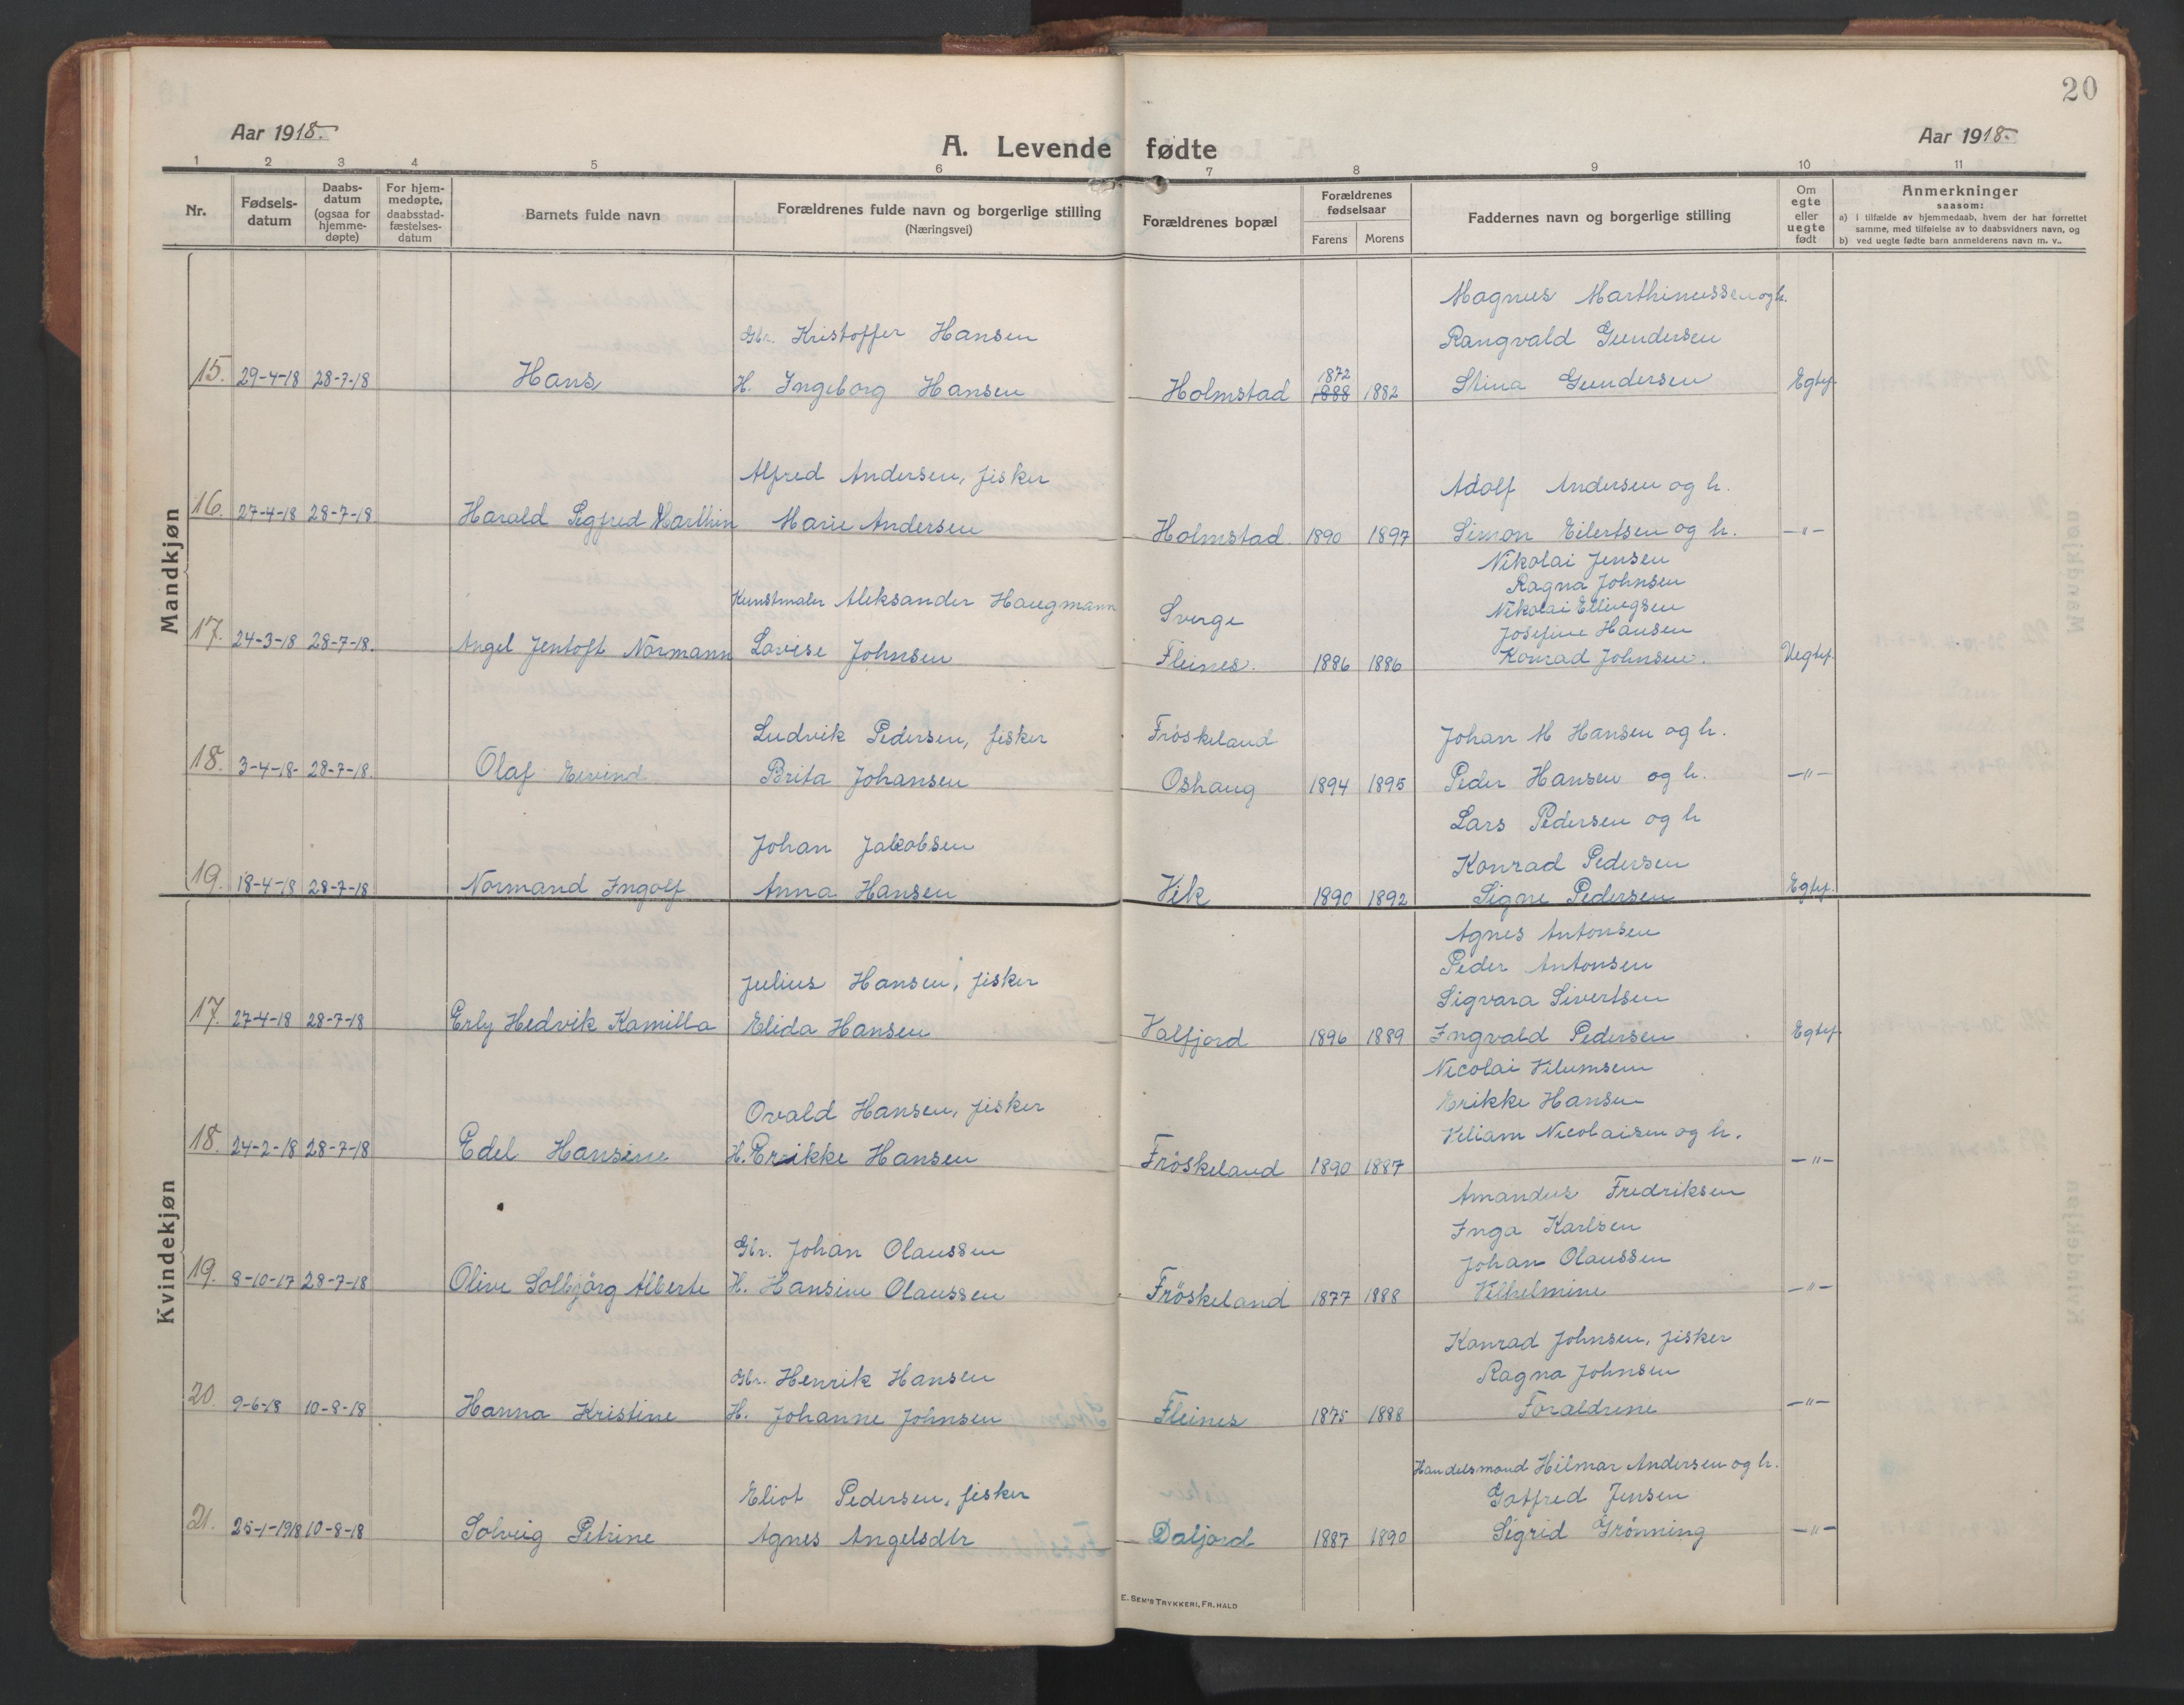 20
Aar 1918.
A. Levende fødte
Aar 1918.
1 2 3 4 5 6 7 8 9 10 11
Nr.
Fødsels-
datum
Daabs-
datum
(ogsaa for
hjemme-
døpte)
For hjem-
medøpte,
daabsstad-
fæstelses-
datum
Barnets fulde navn
Forældrenes fulde navn og borgerlige stilling
(Næringsvei)
Forældrenes bopæl
Forældrenes
fødselsaar
Farens Morens
Faddernes navn og borgerlige stilling
Om
egte
eller
uegte
født
Anmerkninger
saasom:
a) i tilfælde av hjemmedaab, hvem der har forrettet
samme, med tilføielse av to daabsvidners navn, og
b) ved uegte fødte barn anmelderens navn m. v..
Mandkjøn
Magnus Marthinussen og h.
Gbr. Kristoffer Hansen Rangvald Gundersen
1872
15. 29-4-18 28-7-18 Hans H. Ingeborg Hansen Holmstad 1888 1882 Stina Gundersen Egtef.
Alfred Andersen, fisker Adolf Andersen og h.
16. 27-4-18 28-7-18 Harald Sigfred Marthin Marie Andersen Holmstad 1890 1897 Simon Eilertsen og h. -"-
Nikolai Jensen
Ragna Johnsen
Kunstmaler Aleksander Haugmann Sverge Nikolai Ellingsen
Josefine Hansen
17. 24-3-18 28-7-18. Angel Jentoft Normann Lovise Johnsen Fleines. 1886 1886 Konrad Johnsen. Uegtef.
Ludvik Pedersen, fisker Fröskeland Johan M Hansen og h.
18. 3-4-18- 28-7-18. Olaf Eivind Brita Johansen Oshaug 1894 1895 Peder Hansen og h. -"-
Lars Pedersen og h
Johan Jakobsen Konrad Pedersen
19. 18-4-18 28-7-18 Normand Ingolf Anna Hansen Vik 1890 1892 Signe Pedersen Egtef.
Kvindekjøn
Agnes Antonsen
Peder Antonsen
Julius Hansen, fisker Sigvara Sivertsen
17. 27-4-18 28-7-18 Erly Hedvik Kamilla Elida Hansen Valfjord 1896 1889 Ingvald Pedersen Egtef.
Nicolai Vilumsen
Ovald Hansen, fisker Erikke Hansen
Viliam Nicolaisen og h.
18. 24-2-18 28-7-18 Edel Hansine H. Erikke Hansen Fröskeland 1890 1887 -"-
Amandus Fredriksen
Inga Karlsen
Gbr. Johan Olaussen Johan Olaussen
19. 8-10-17 28-7-18 Olive Solbjörg Alberte H. Hansine Olaussen Fröskeland 1877 1888 Vilhelmine -"-
Konrad Johnsen, fisker
Gbr. Henrik Hansen Ragna Johnsen
20. 9-6-18 10-8-18 Hanna Kristine H. Johanne Johnsen Fleines 1875 1888 Foraldrene -"-
Handelsmand Hilmar Andersen og h.
Eliot Pedersen, fisker Gotfred Jensen
21. 25-1-1918 10-8-18 Solveig Petrine Agnes Angelsdtr Daljord 1887 1890 Sigrid Grönning -"-
E. Sem's Trykkeri, Fr.hald